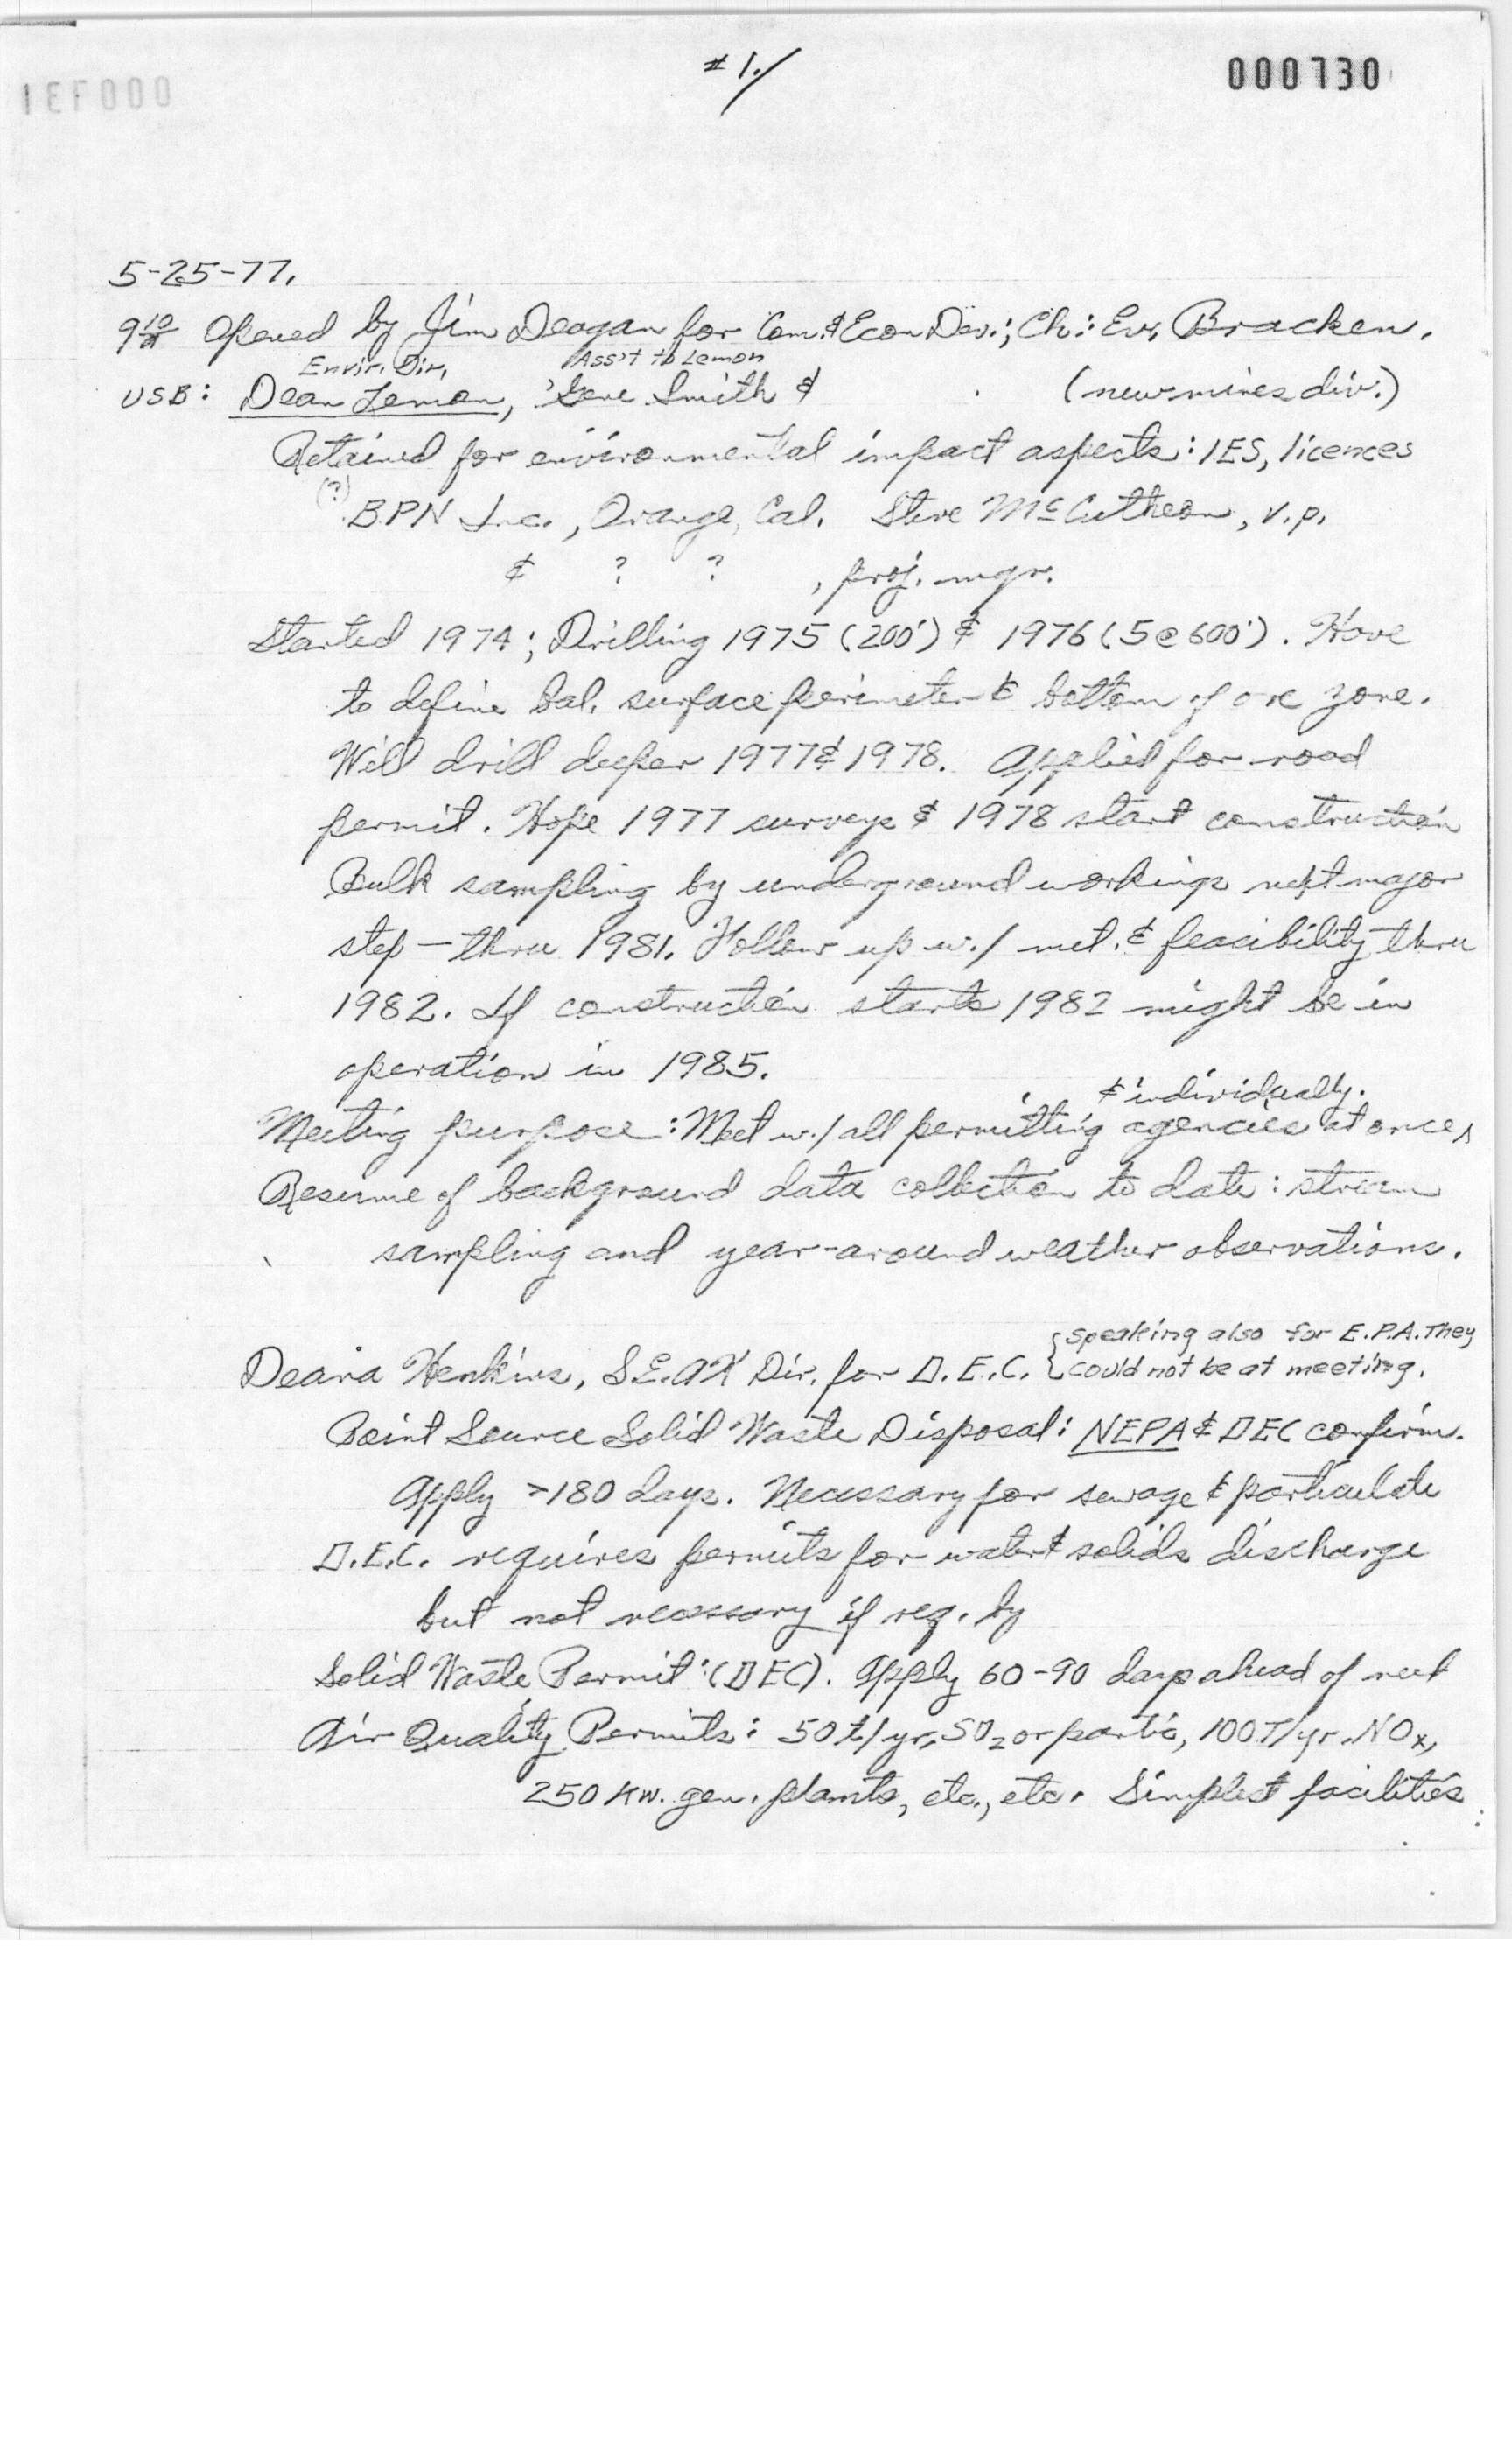 #1./
000730
5-25-77.
9 10 Opened by Jim Deagan for Com. & Econ Dev.; Ch.: Ev. Bracken.
Envir. Dir. Ass't to Lemon
USB: Dean Lemon, Gene Smith & (new mines div.)
Retained for environmental impact aspects: IES, licences
(?)
B.P.N Inc., Orange, Cal. Steve McCutheon, v.p.
& ? ? , proj. mgr.
Started 1974; Drilling 1975 (200') & 1976 (5@600'). Have
to define bal. surface perimeter & bottom of ore zone.
Will drill deeper 1977 & 1978. Applied for road
permit. Hope 1977 surveys & 1978 start construction
Bulk sampling by underground workings next major
step — thru 1981. Follow up w./ met. & feasibility thru
1982. If construction starts 1982 might be in
operation in 1985.
& individually.
Meeting purpose: Meet w./ all permitting agencies at once,
Resume of background data collection to date: stream
sampling and year-around weather observations.
{speaking also for E.P.A. They
Deana Henkins, S.E. AK Dir. for D.E.C. could not be at meeting.
Point Source Solid Waste Disposal: NEPA & DEC confirm.
Apply >180 days. Necessary for sewage & particulate
D.E.C. requires permits for water & solids discharge
but not necessary if req. by
Solid Waste Permit: (DEC). Apply 60-90 days ahead of need
Air Quality Permits: 50 t/yr, SO2 or partic, 100 T/yr. NOx,
250 KW. gen. plants, etc., etc. Simplest facilities